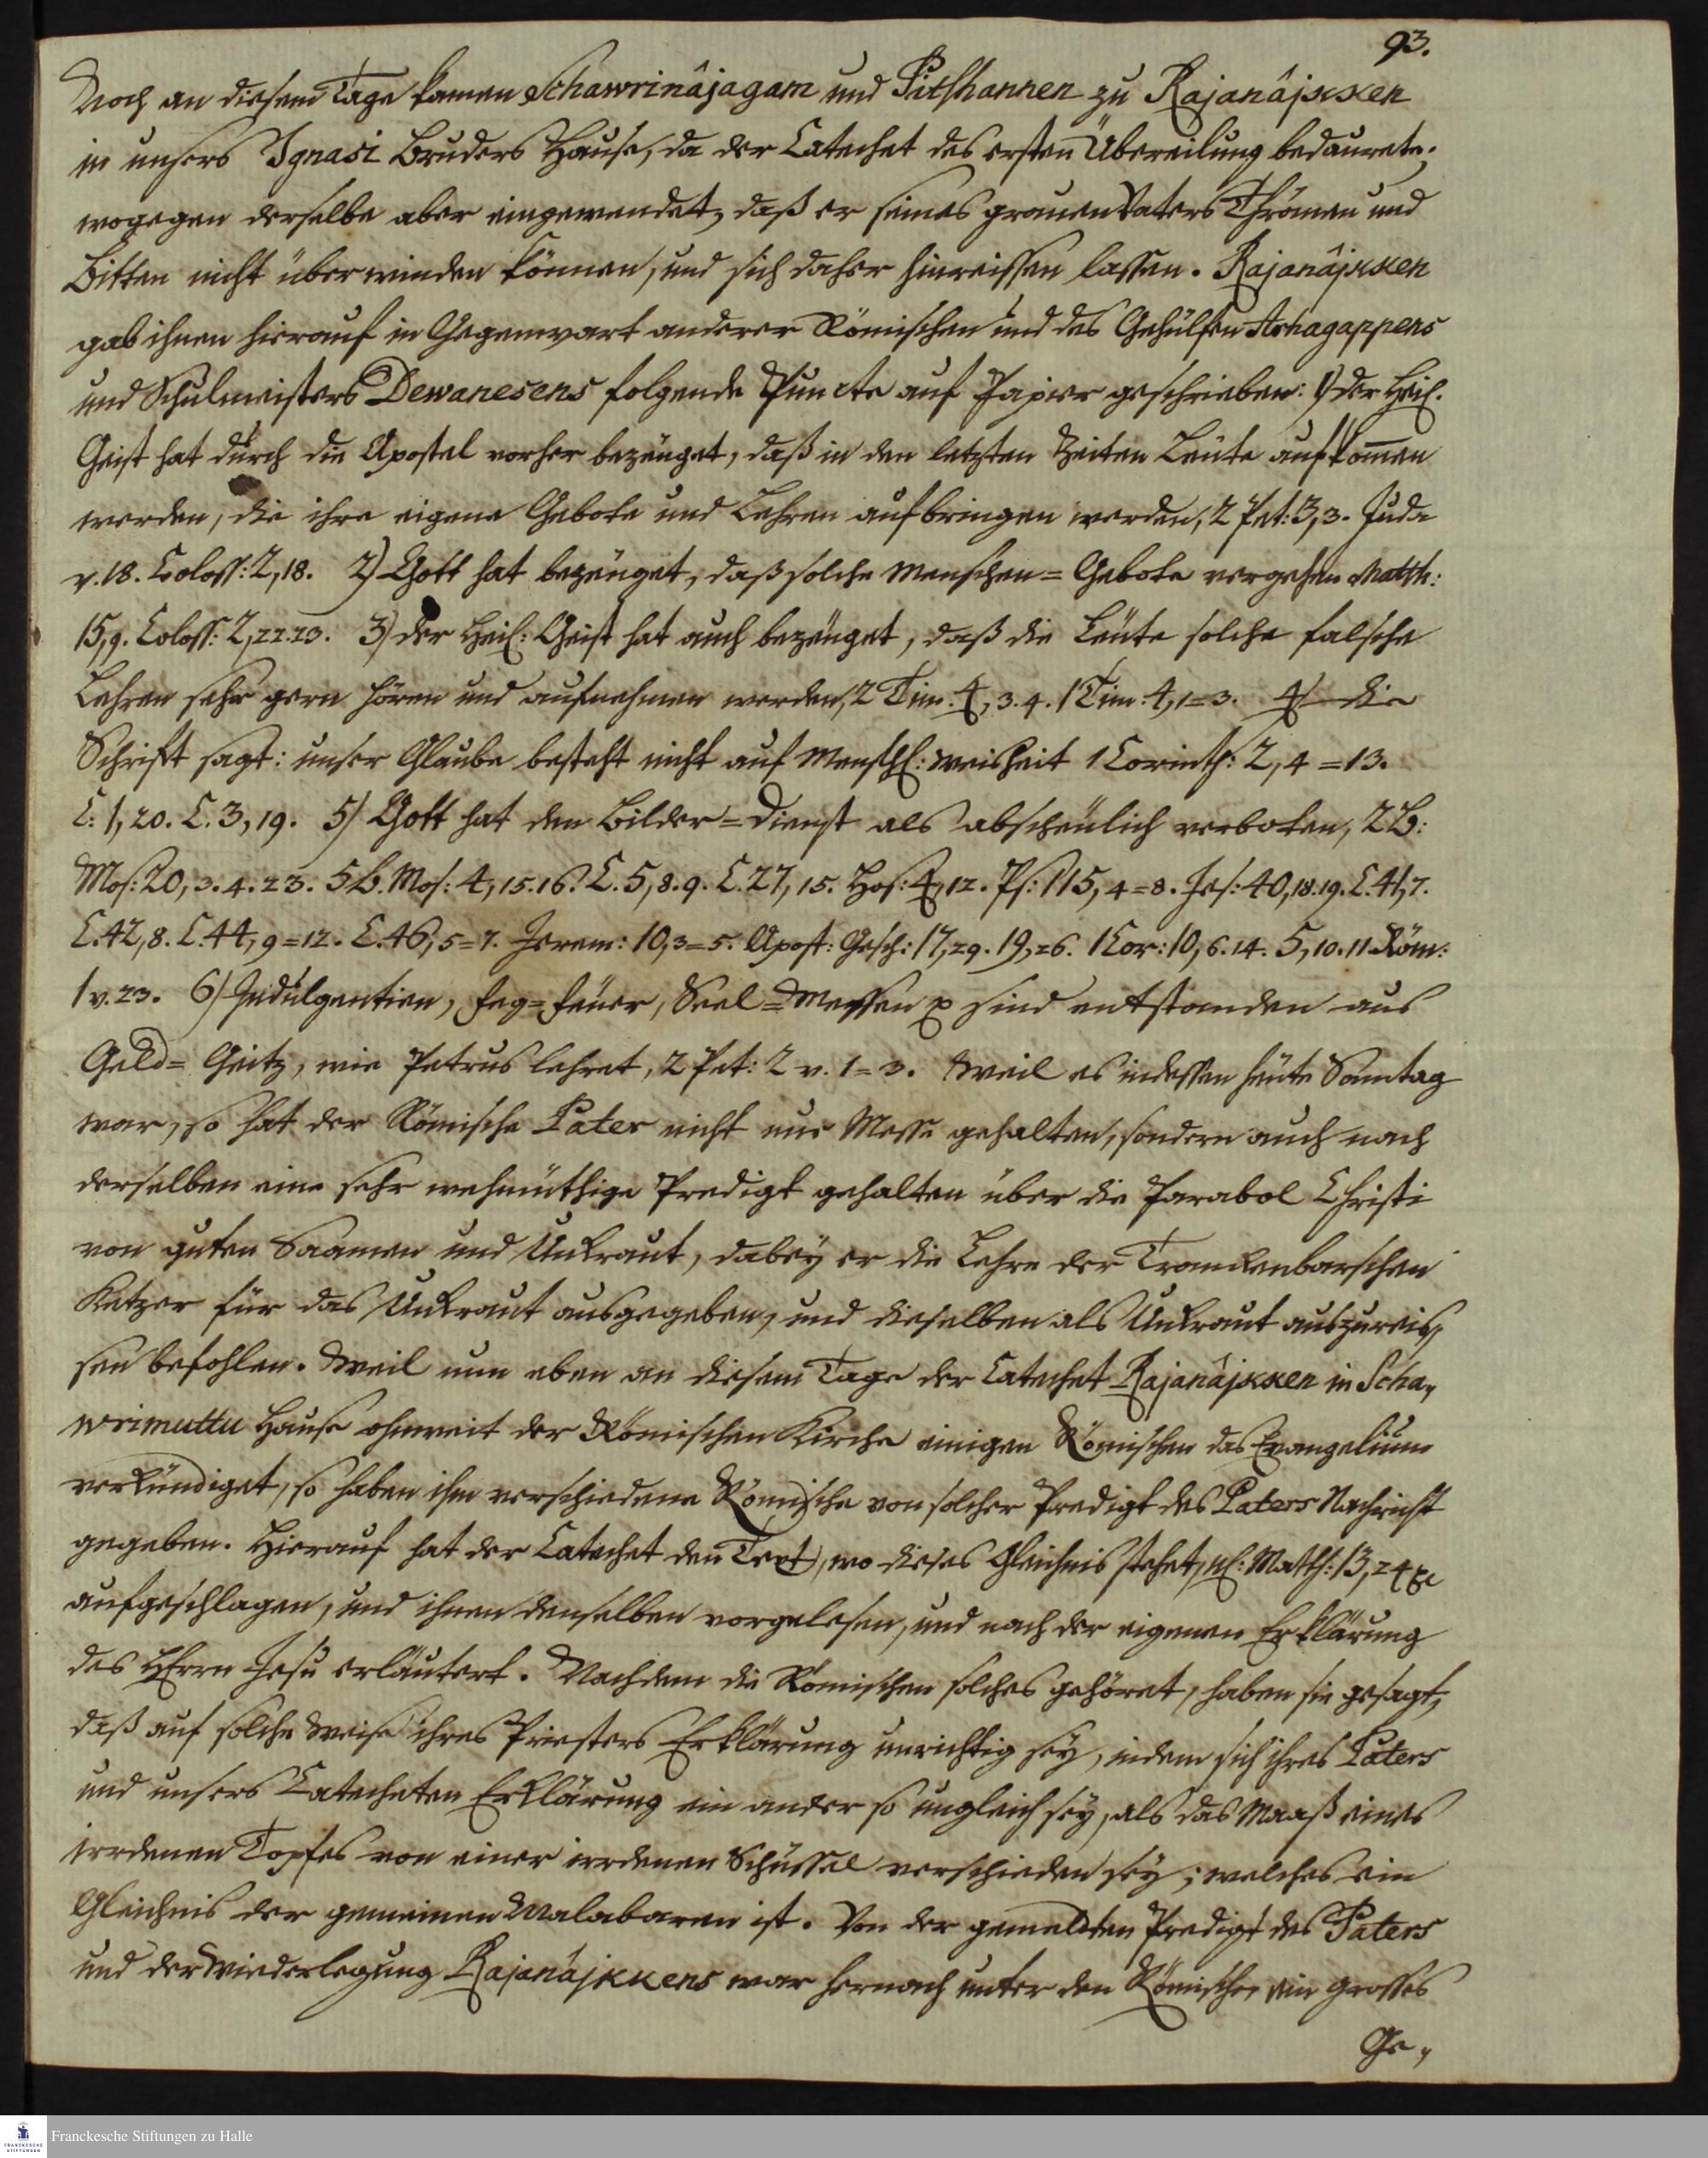 93.
Noch an diesem Tage kamen Schawrinâjagam und Pitshannen zu Rajanâjkken
in unsers Ignasi Bruders Hause, da der Catechet des ersten Übereilung bedaurete;
wogegen derselbe aber eingewendet, daß er seines grauen Vaters Thränen und
Bitten nicht überwinden können, und sich daher hinreissen lassen. Rajanâjkken
gab ihnen hierauf in Gegenwart anderer Römischen und des Gehülfen Arhagappens
und Schulmeisters Dewanesens folgende Puncte auf Papier geschrieben: 1) der Heil.
Geist hat durch die Apostel vorher bezeuget, daß in den letzten Zeiten Leute aufkom̅en
werden, die ihre eigene Gebote und Lehren aufbringen werden, 2 Pet: 3, 3. Juda
v. 18. Coloss: 2, 18. 2) Gott hat bezeuget, daß solche Menschen=Gebote vergehen Matth:
15, 9. Coloss: 2, 22.23. 3) der Heil: Geist hat auch bezeuget, daß die Leute solche falsche
Lehren sehr gern hören und aufnehmen werden, 2 Tim: 4, 3. 4. 1 Tim: 4, 1=3. 4) die
Schrift sagt: unser Glaube besteht nicht auf Menschl: Weisheit 1 Corinth: 2, 4=13.
C: 1, 20. C. 3, 19. 5) Gott hat den Bilder=Dienst als abscheulich verboten, 2 B:
Mos: 20, 3. 4. 23. 5 B. Mos: 4, 15.16. C. 5, 8. 9. C. 27, 15. Hos: 4, 12. Ps: 115, 4=8. Jes: 40, 18.19. C. 41, 7.
C. 42, 8. C. 44, 9=12. C. 46, 5=7. Jerem: 10, 3=5. Apost: Gesch: 17, 29. 19, 26. 1 Cor: 10, 6. 14. 5, 10. 11 Röm:
1 v. 23. 6) Indulgentien, Feg=Feuer, Seel=Messen p sind entstanden aus
Geld=Geitz, wie Petrus lehret, 2 Pet: 2 v. 1=3. Weil es indessen heute Sonntag
war, so hat der Römische Pater nicht nur Messe gehalten, sondern auch nach
derselben eine sehr wehmüthige Predigt gehalten über die Parabol Christi
von guten Saamen und Unkraut, dabey er die Lehre der Trankenbarschen
Ketzer für das Unkraut ausgegeben, und dieselben als Unkraut auszureis,
sen befohlen. Weil nun eben an diesem Tage der Catechet Rajanâjkken in Scha,
wrimuttu Hause ohnweit der Römischen Kirche einigen Römischen das Evangelium
verkündiget, so haben ihm verschiedene Römische von solcher Predigt des Paters Nachricht
gegeben. Hierauf hat der Catechet den Text, wo dieses Gleichnis stehet, nl: Matth: 13, 24 pp
aufgeschlagen, und ihnen denselben vorgelesen, und nach der eigenen Erklärung
des HErrn Jesu erläutert. Nachdem die Römischen solches gehöret, haben sie gesagt,
daß auf solche Weise ihres Priesters Erklärung unrichtig sey, indem sich ihres Paters
und unsers Catecheten Erklärung ein ander so ungleich sey, als das Maaß eines
irrdenen Topfes von einer irrdenen Schüssel verschieden sey; welches ein
Gleichnis der gemeinen Malabaren ist. Von der gemeldten Predigt des Paters
und der Wiederlegung Rajanâjkkens war hernach unter den Römischen ein grosses
Ge,
FRANCKESCHE STIFTUNGEN
Franckesche Stiftungen zu Halle